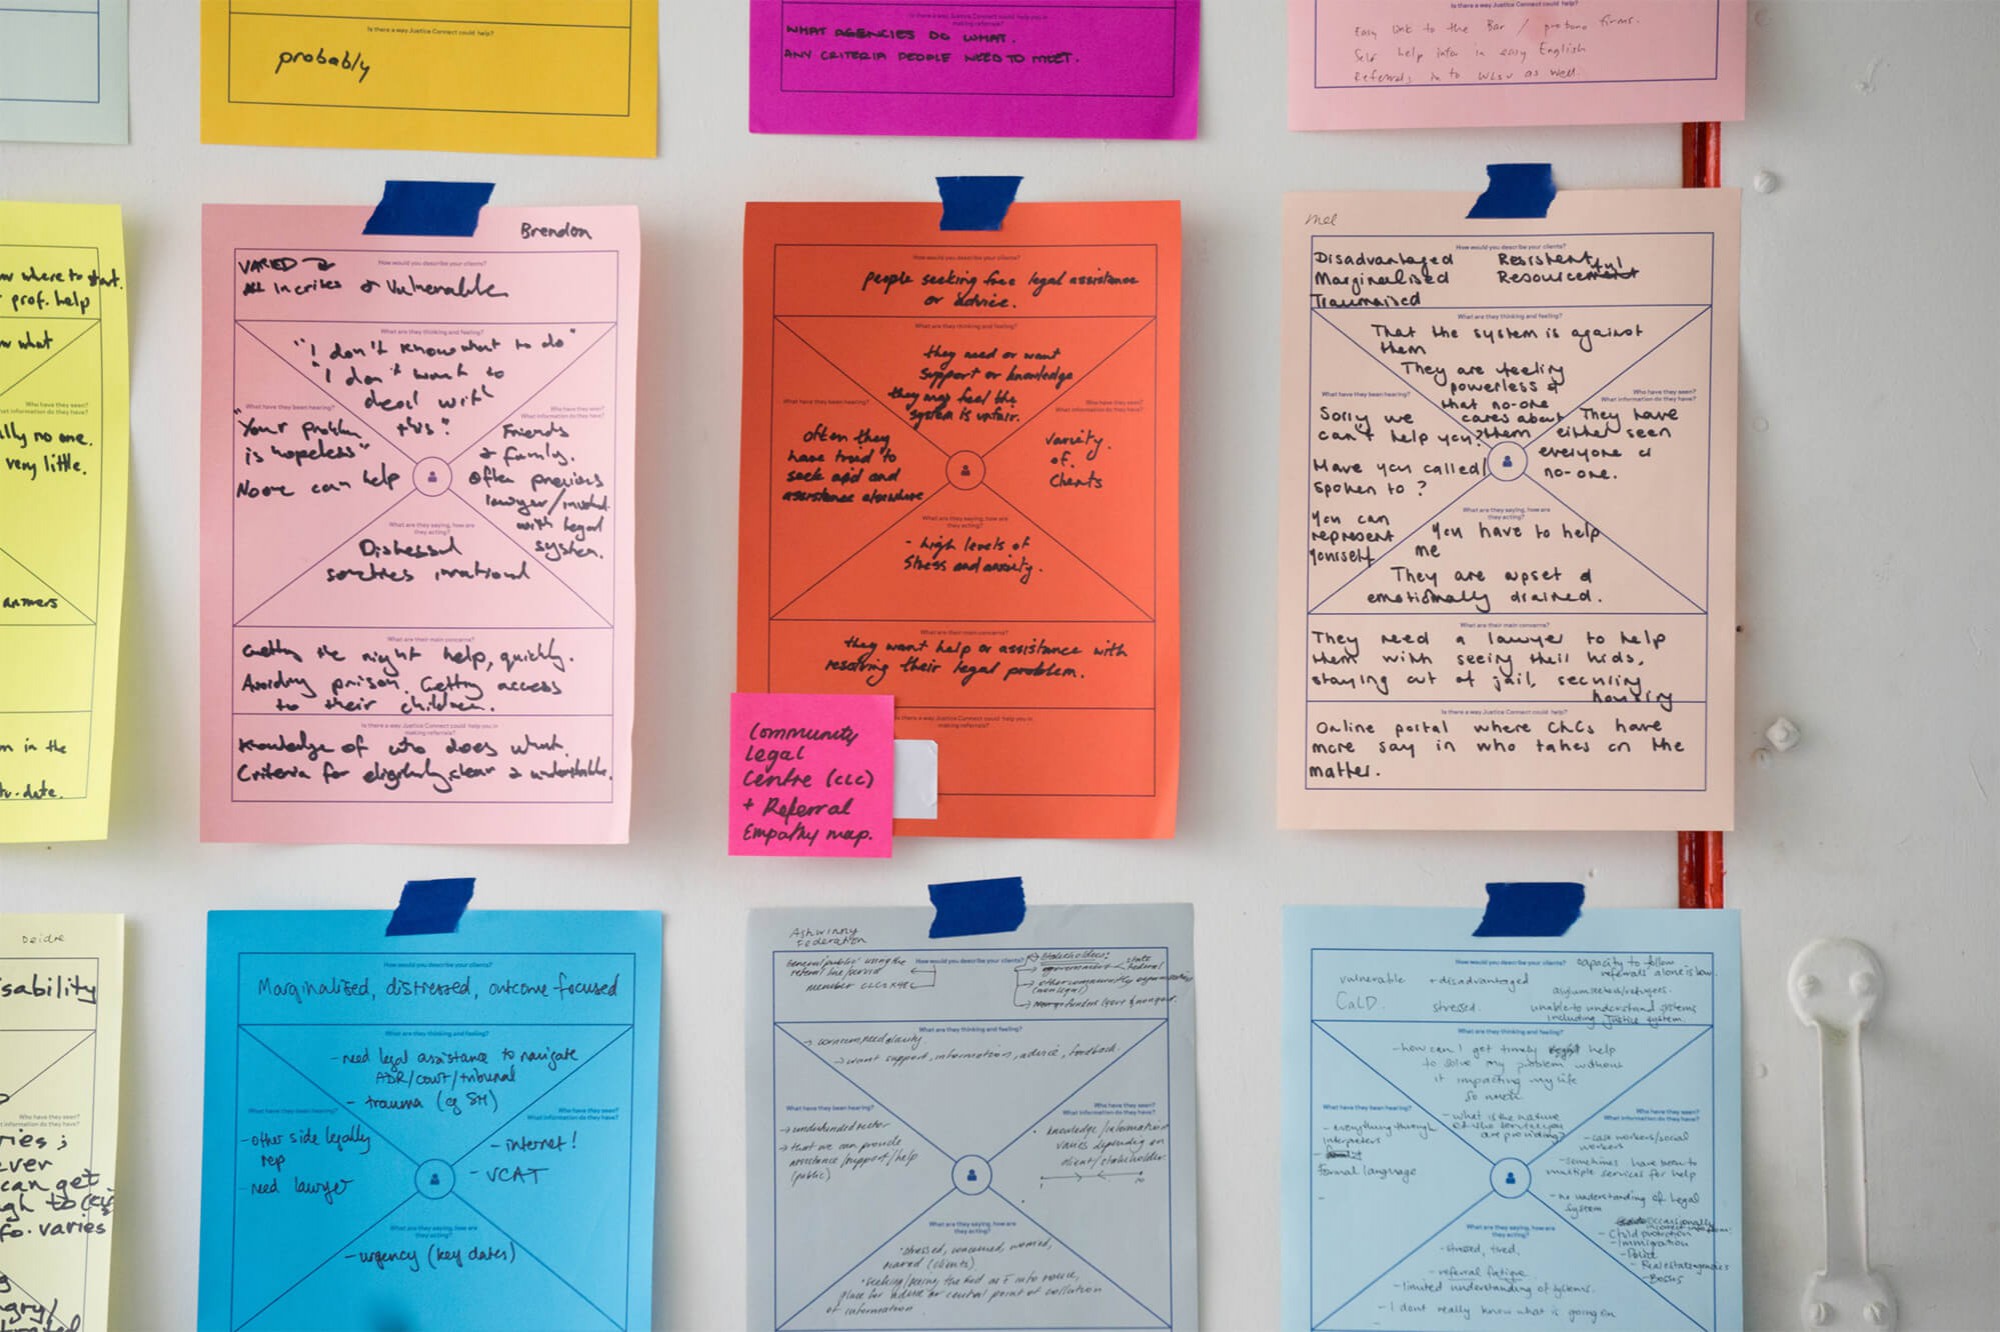 Is there a way Justice Connect could help?
probably
Is there a way Justice Connect could help you in
making referrals?
WHAT AGENCIES DO WHAT.
ANY CRITERIA PEOPLE NEED TO MEET.
Is there a way Justice Connect could help?
Easy link to the Bar / probono firms.
Self help info in easy English
Referrals in to WLSV as well.
where to start.
prof. help
what
no one.
very little.
answers
in the
date.
Brendon
How would you describe your clients?
VARIED
All in crises & vulnerable
What are they thinking and feeling?
"I don't know what to do"
"I don't want to
deal with
this"
What have they been hearing?
"Your problem
is hopeless"
No one can help
Who have they seen?
What information do they have?
Friends
& family.
Often previous
lawyer/
with legal
system.
What are they saying, how are
they acting?
Distressed
sometimes irrational
What are their main concerns?
Getting the right help, quickly.
Avoiding prison. Getting access
to their children.
Is there a way Justice Connect could help you in
making referrals?
Knowledge of who does what.
Criteria for eligibility clear & understandable.
How would you describe your clients?
people seeking free legal assistance
or advice.
What are they thinking and feeling?
they need or want
support or knowledge
they may feel the
system is unfair.
What have they been hearing?
often they
have tried to
seek aid and
assistance elsewhere
Who have they seen?
What information do they have?
variety
of.
Clients
What are they saying, how are
they acting?
- high levels of
stress and anxiety.
What are their main concerns?
they want help or assistance with
resolving their legal problem.
Is there a way Justice Connect could help you in
making referrals?
Community
Legal
Centre (CLC)
+ Referral
Empathy map.
Mel
How would you describe your clients?
Disadvantaged Resistent
Marginalised Resourceful
Traumatised
What are they thinking and feeling?
That the system is against
them
They are feeling
powerless &
that no-one
cares about
them
What have they been hearing?
Sorry we
can't help you?
Have you called/
spoken to?
You can
represent
yourself
Who have they seen?
What information do they have?
They have
either seen
everyone or
no-one.
What are they saying, how are
they acting?
You have to help
me
They are upset &
emotionally drained.
What are their main concerns?
They need a lawyer to help
them with seeing their kids,
staying out of jail, securing
housing
Is there a way Justice Connect could help?
Online portal where CLCs have
more say in who takes on the
matter.
Deidre
Who have they seen?
What information do they have?
can get
varies
How would you describe your clients?
Marginalised, distressed, outcome focused
What are they thinking and feeling?
- need legal assistance to navigate
ADR/court/tribunal
- trauma (eg SH)
What have they been hearing?
- other side legally
rep
- need lawyer
Who have they seen?
What information do they have?
- internet!
- VCAT
What are they saying, how are
they acting?
- urgency (key dates)
Ashwinny
Federation
How would you describe your clients?
General public using the
referral line/service
member CLCs
Stakeholders:
government
state
federal
other community organisations
(non legal)
What are they thinking and feeling?
→ want support, information, advice, feedback.
What have they been hearing?
→ underfunded sector
→ that we can provide
assistance/support/help
(public)
Who have they seen?
What information do they have?
knowledge/information
varies depending on
client/stakeholder.
What are they saying, how are
they acting?
• stressed, concerned, worried,
scared (clients)
place for advice or central point of collation
of information.
How would you describe your clients?
capacity to follow
referrals alone is low.
vulnerable + disadvantaged
asylum seekers/refugees.
CaLD. stressed.
unable to understand systems
including justice system.
What are they thinking and feeling?
- how can I get timely help
to solve my problem without
it impacting my life
so much.
- what is the nature
of the service you
are providing?
What have they been hearing?
- everything through
interpreters
formal language
Who have they seen?
What information do they have?
- case workers/social
workers
- sometimes have been to
multiple services for help
- no understanding of legal
system
occasionally
- Child protection
- Immigration
- Police
- Real estate agencies
- Bosses
What are they saying, how are
they acting?
- stressed, tired.
- referral fatigue
- limited understanding of systems.
- I dont really know what is going on